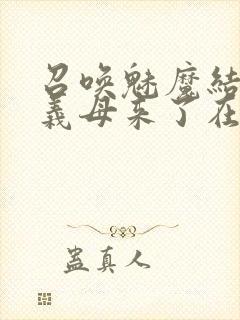 召唤魅魔结
义母来了在
蛊真人